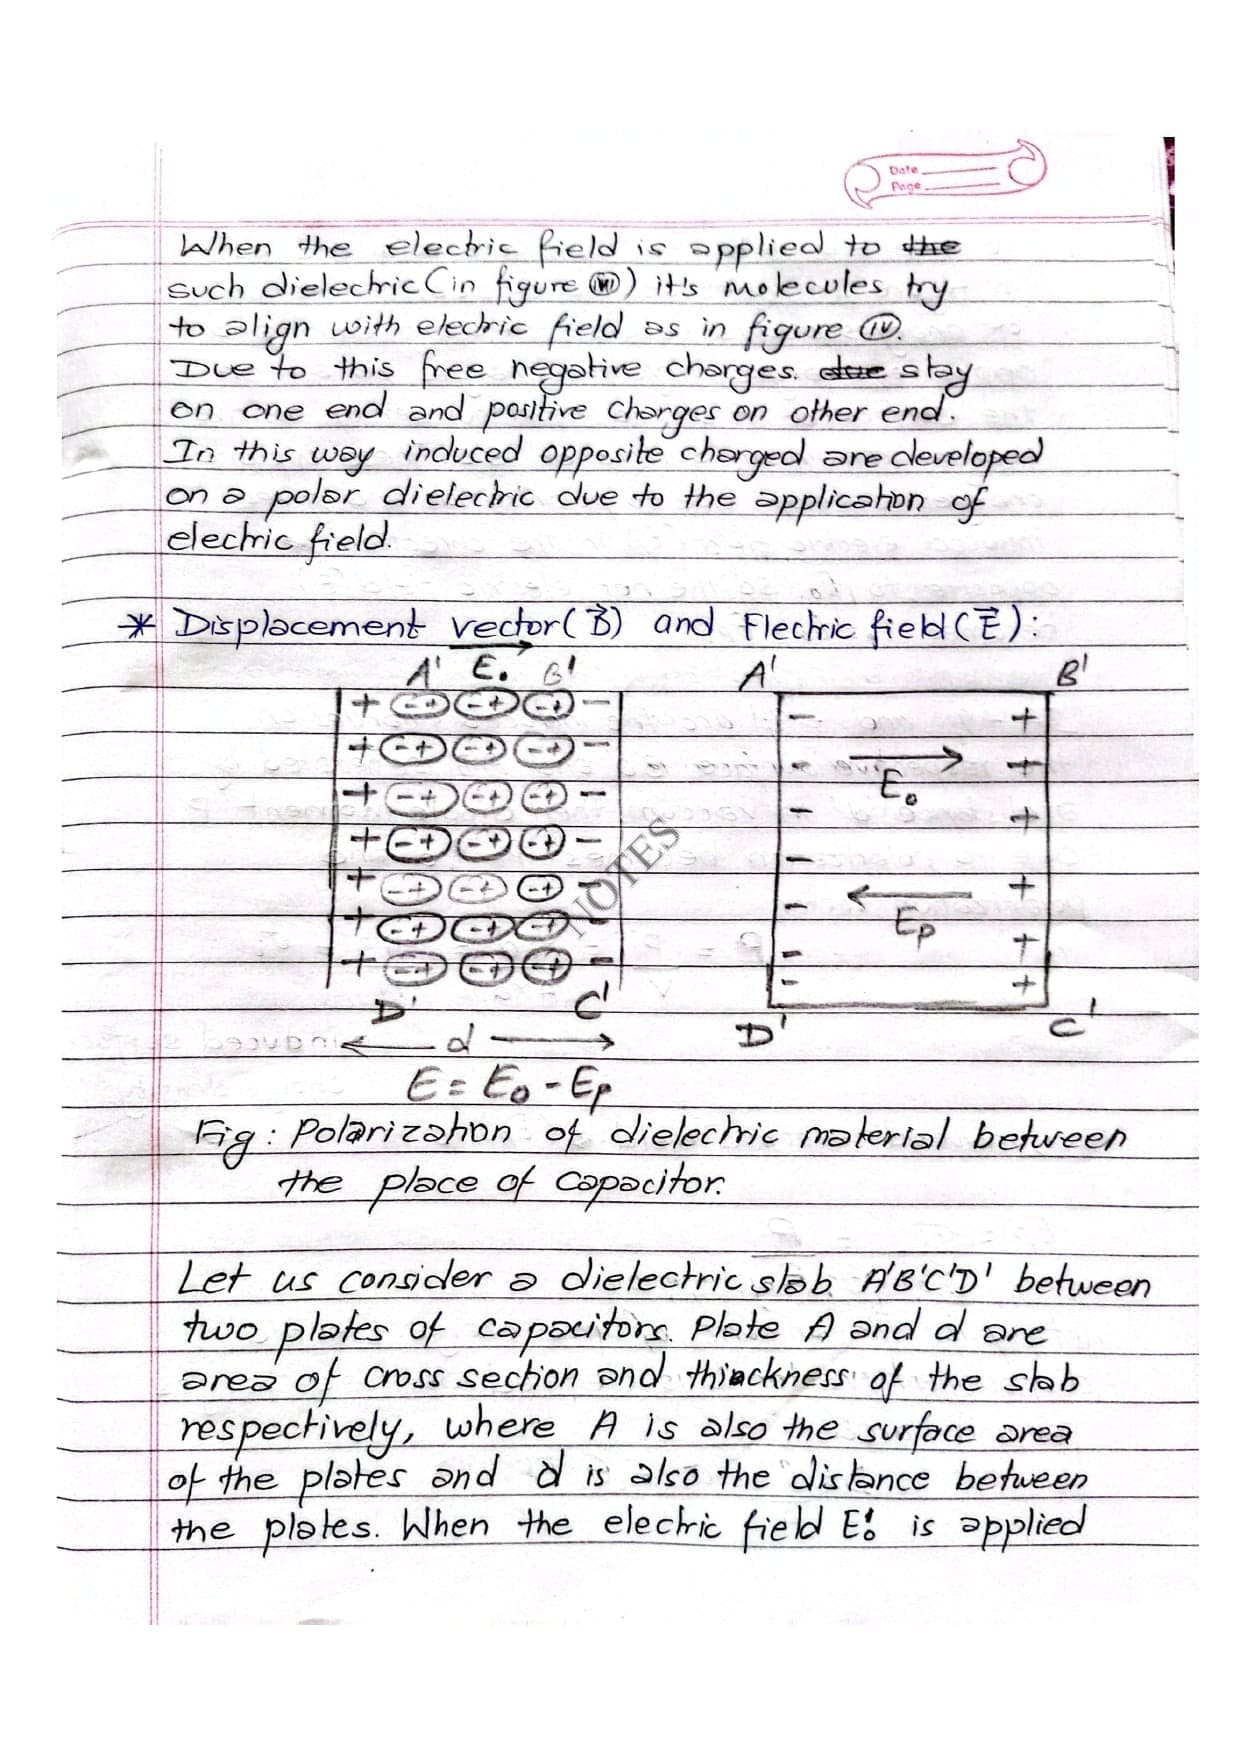 Date
Page
When the electric field is applied to the
such dielectric (in figure ) it's molecules try
to align with electric field as in figure (iv).
Due to this free negative charges. due stay
on one end and positive charges on other end.
In this way induced opposite charged are developed
on a polar dielectric due to the application of
electric field.
* Displacement vector(D⃗) and Electric field(E⃗):
A' E₀ B'
A' B'
+ - + - + - + -
+ - + - + - + -
+ - + - + - + -
+ - + - + - + -
+ - + - + - + -
+ - + - + - + -
+ - + - + - + -
- +
- +
E₀
- +
-
- +
Ep
- +
- +
D' C'
D' C'
d
E = E₀ - Ep
NOTES
Fig: Polarization of dielectric material between
the place of capacitor.
Let us consider a dielectric slab A'B'C'D' between
two plates of capacitors. Plate A and d are
area of cross section and thickness of the slab
respectively, where A is also the surface area
of the plates and d is also the distance between
the plates. When the electric field E₀ is applied